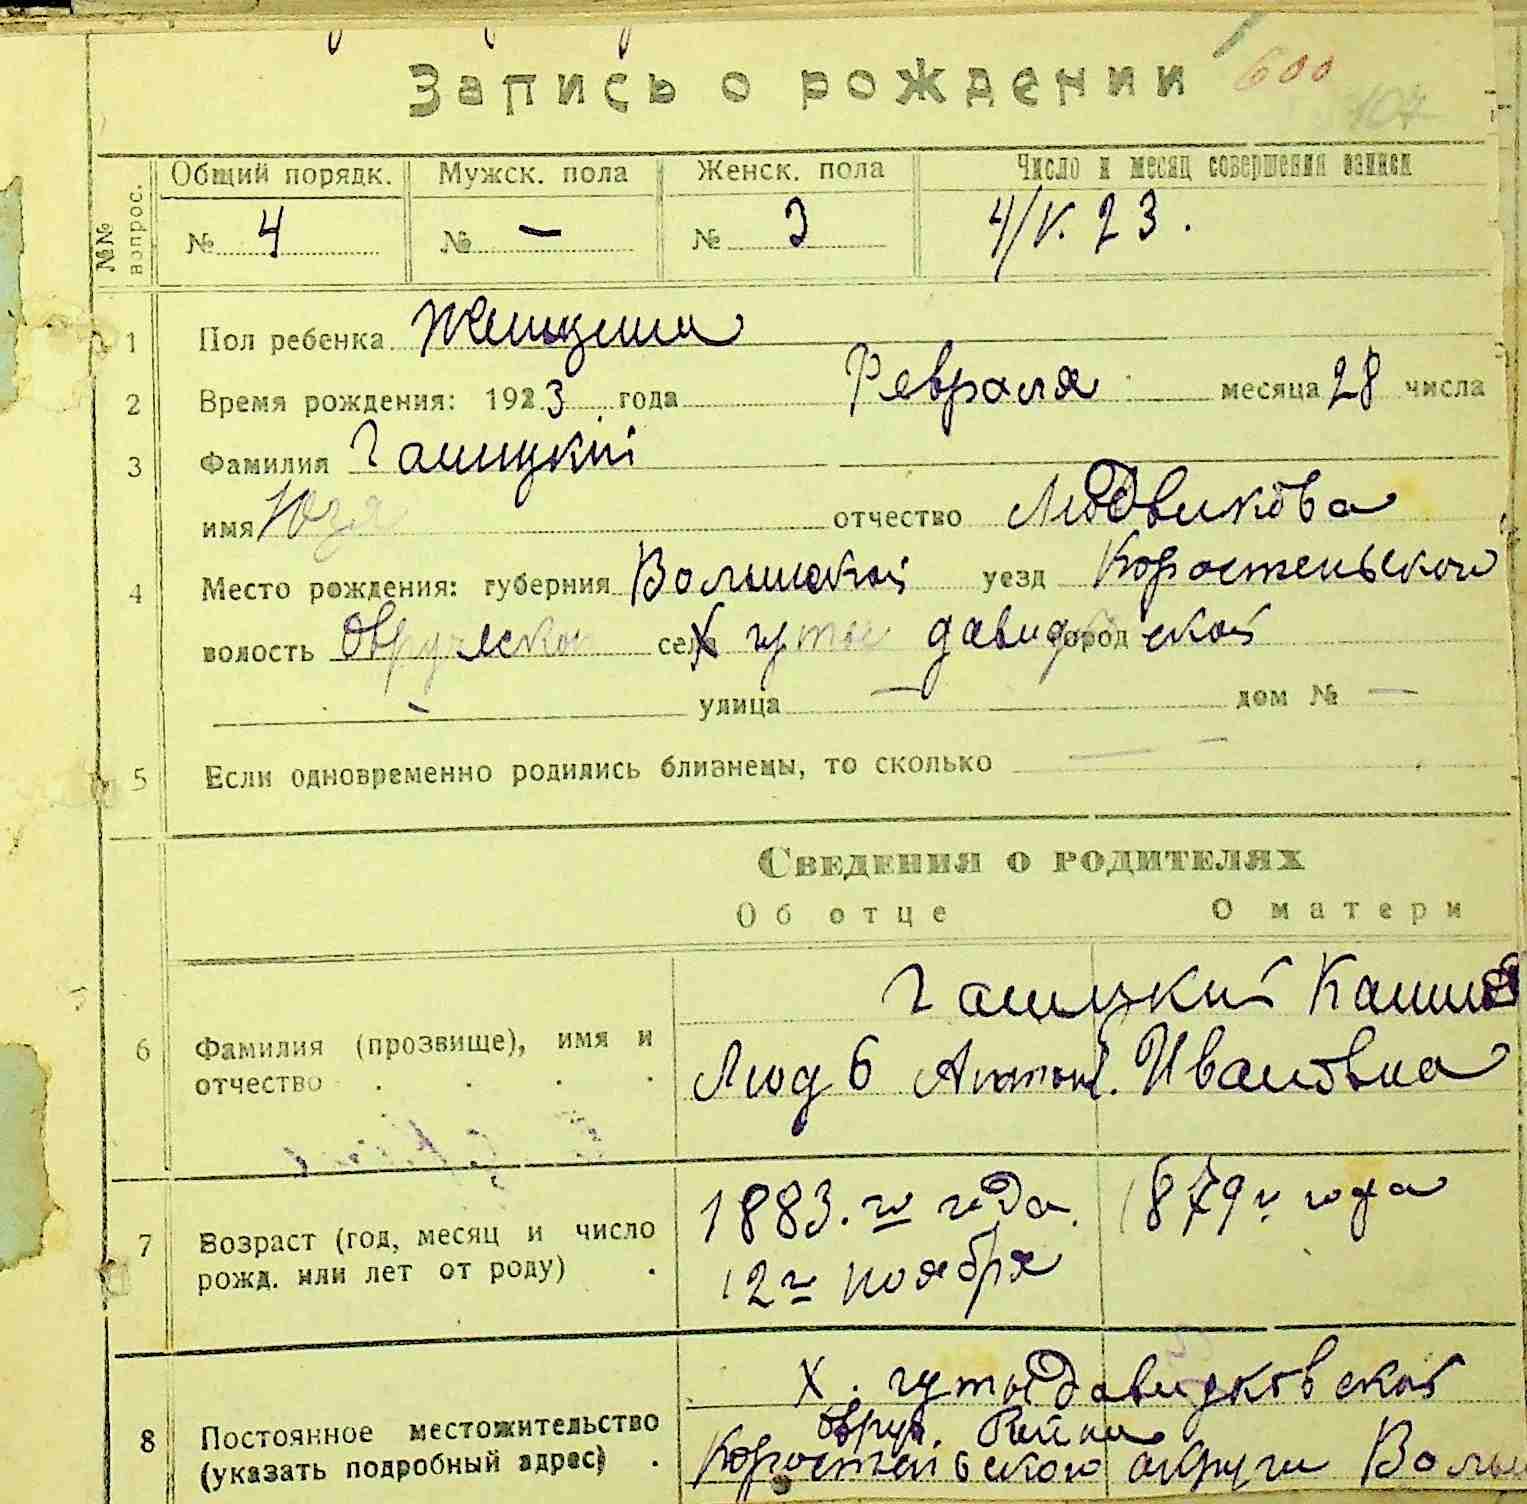 Запись о рождении 600
107
№№ вопрос. Общий порядк. Мужск. пола Женск. пола Число и месяц совершения записи
№ 4 № — № 3 4/V. 23.
1 Пол ребенка Женщина
2 Время рождения: 1923 года Февраля месяца 28 числа
3 Фамилия Галицкий
имя Юзя отчество Людвикова
4 Место рождения: губерния Волынской уезд Коростеньского
волость Овручской село Х гуты давидской город
— улица — дом № —
5 Если одновременно родились близнецы, то сколько — —
Сведения о родителях
Об отце О матери
6 Фамилия (прозвище), имя и отчество . . . .
Галицкий
Люд в Антон. Ивановна
7 Возраст (год, месяц и число рожд. или лет от роду) .
1883.го года. 1879г. года
12го ноября
8 Постоянное местожительство (указать подробный адрес) .
Х. гуты Давидковской
Овруч. Района
Коростеньского округи Волын